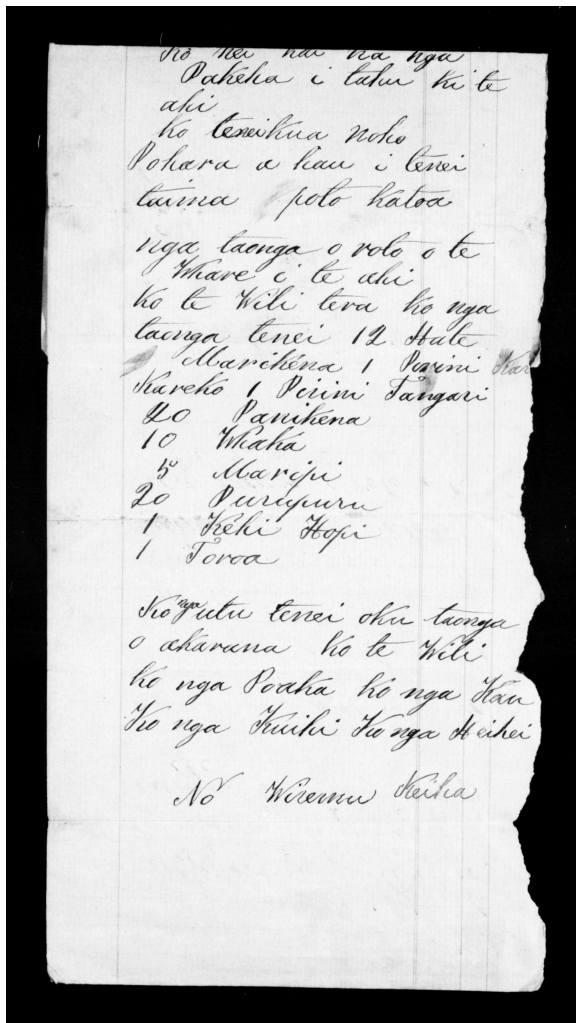 ko nei hai ka nga
Pakeha i tahu ki te
ahi
ko teneikua noho
Pohara a hau i tenei
taima poto katoa
nga taonga o roto o te
Whare i te ahi
ko te Witi tera ko nga
taonga tenei 12 Hate
Marikena 1 Pirini Kar
Kareko 1 Pirini Tangari
20 Panikena
10 Whaka
5 Maripi
20 Purupuru
1 Kehi Hopi
1 Toroa
Ko nga utu tenei oku taonga
o akarana ko te Witi
ko nga Poaka ko nga Kau
Ko nga Kuihi Ko nga Heihei
No Wiremu Keiha